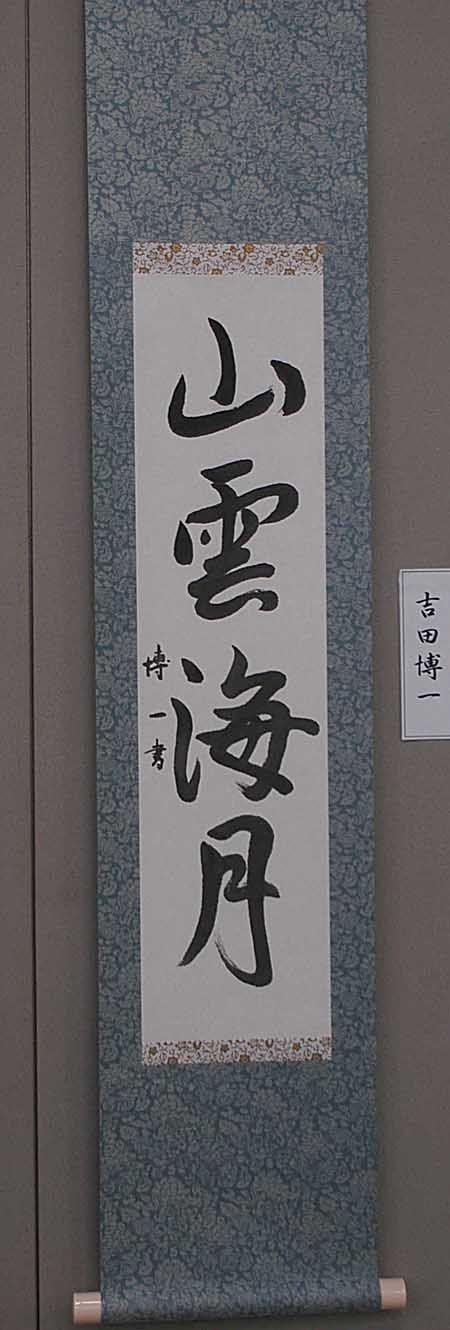 山雲海月
博一書
吉田博一